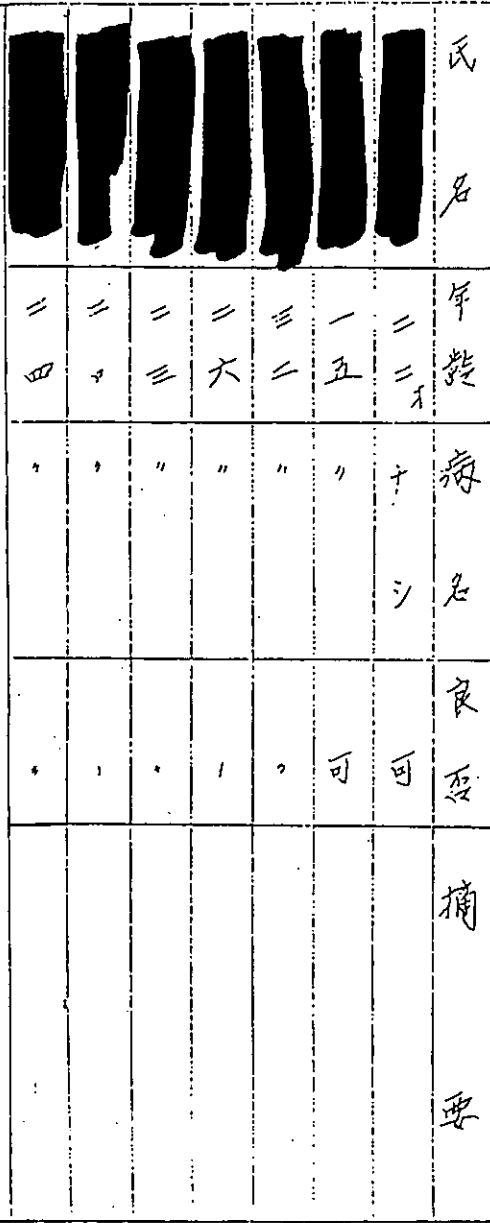 氏名 年齡 病名 良否 摘要
二二才 ナシ 可
一五 〃 可
三二 〃 〃
二六 〃 〃
二三 〃 〃
二〃 〃 〃
二四 〃 〃